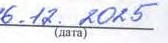 6.12. 2025
(дата)